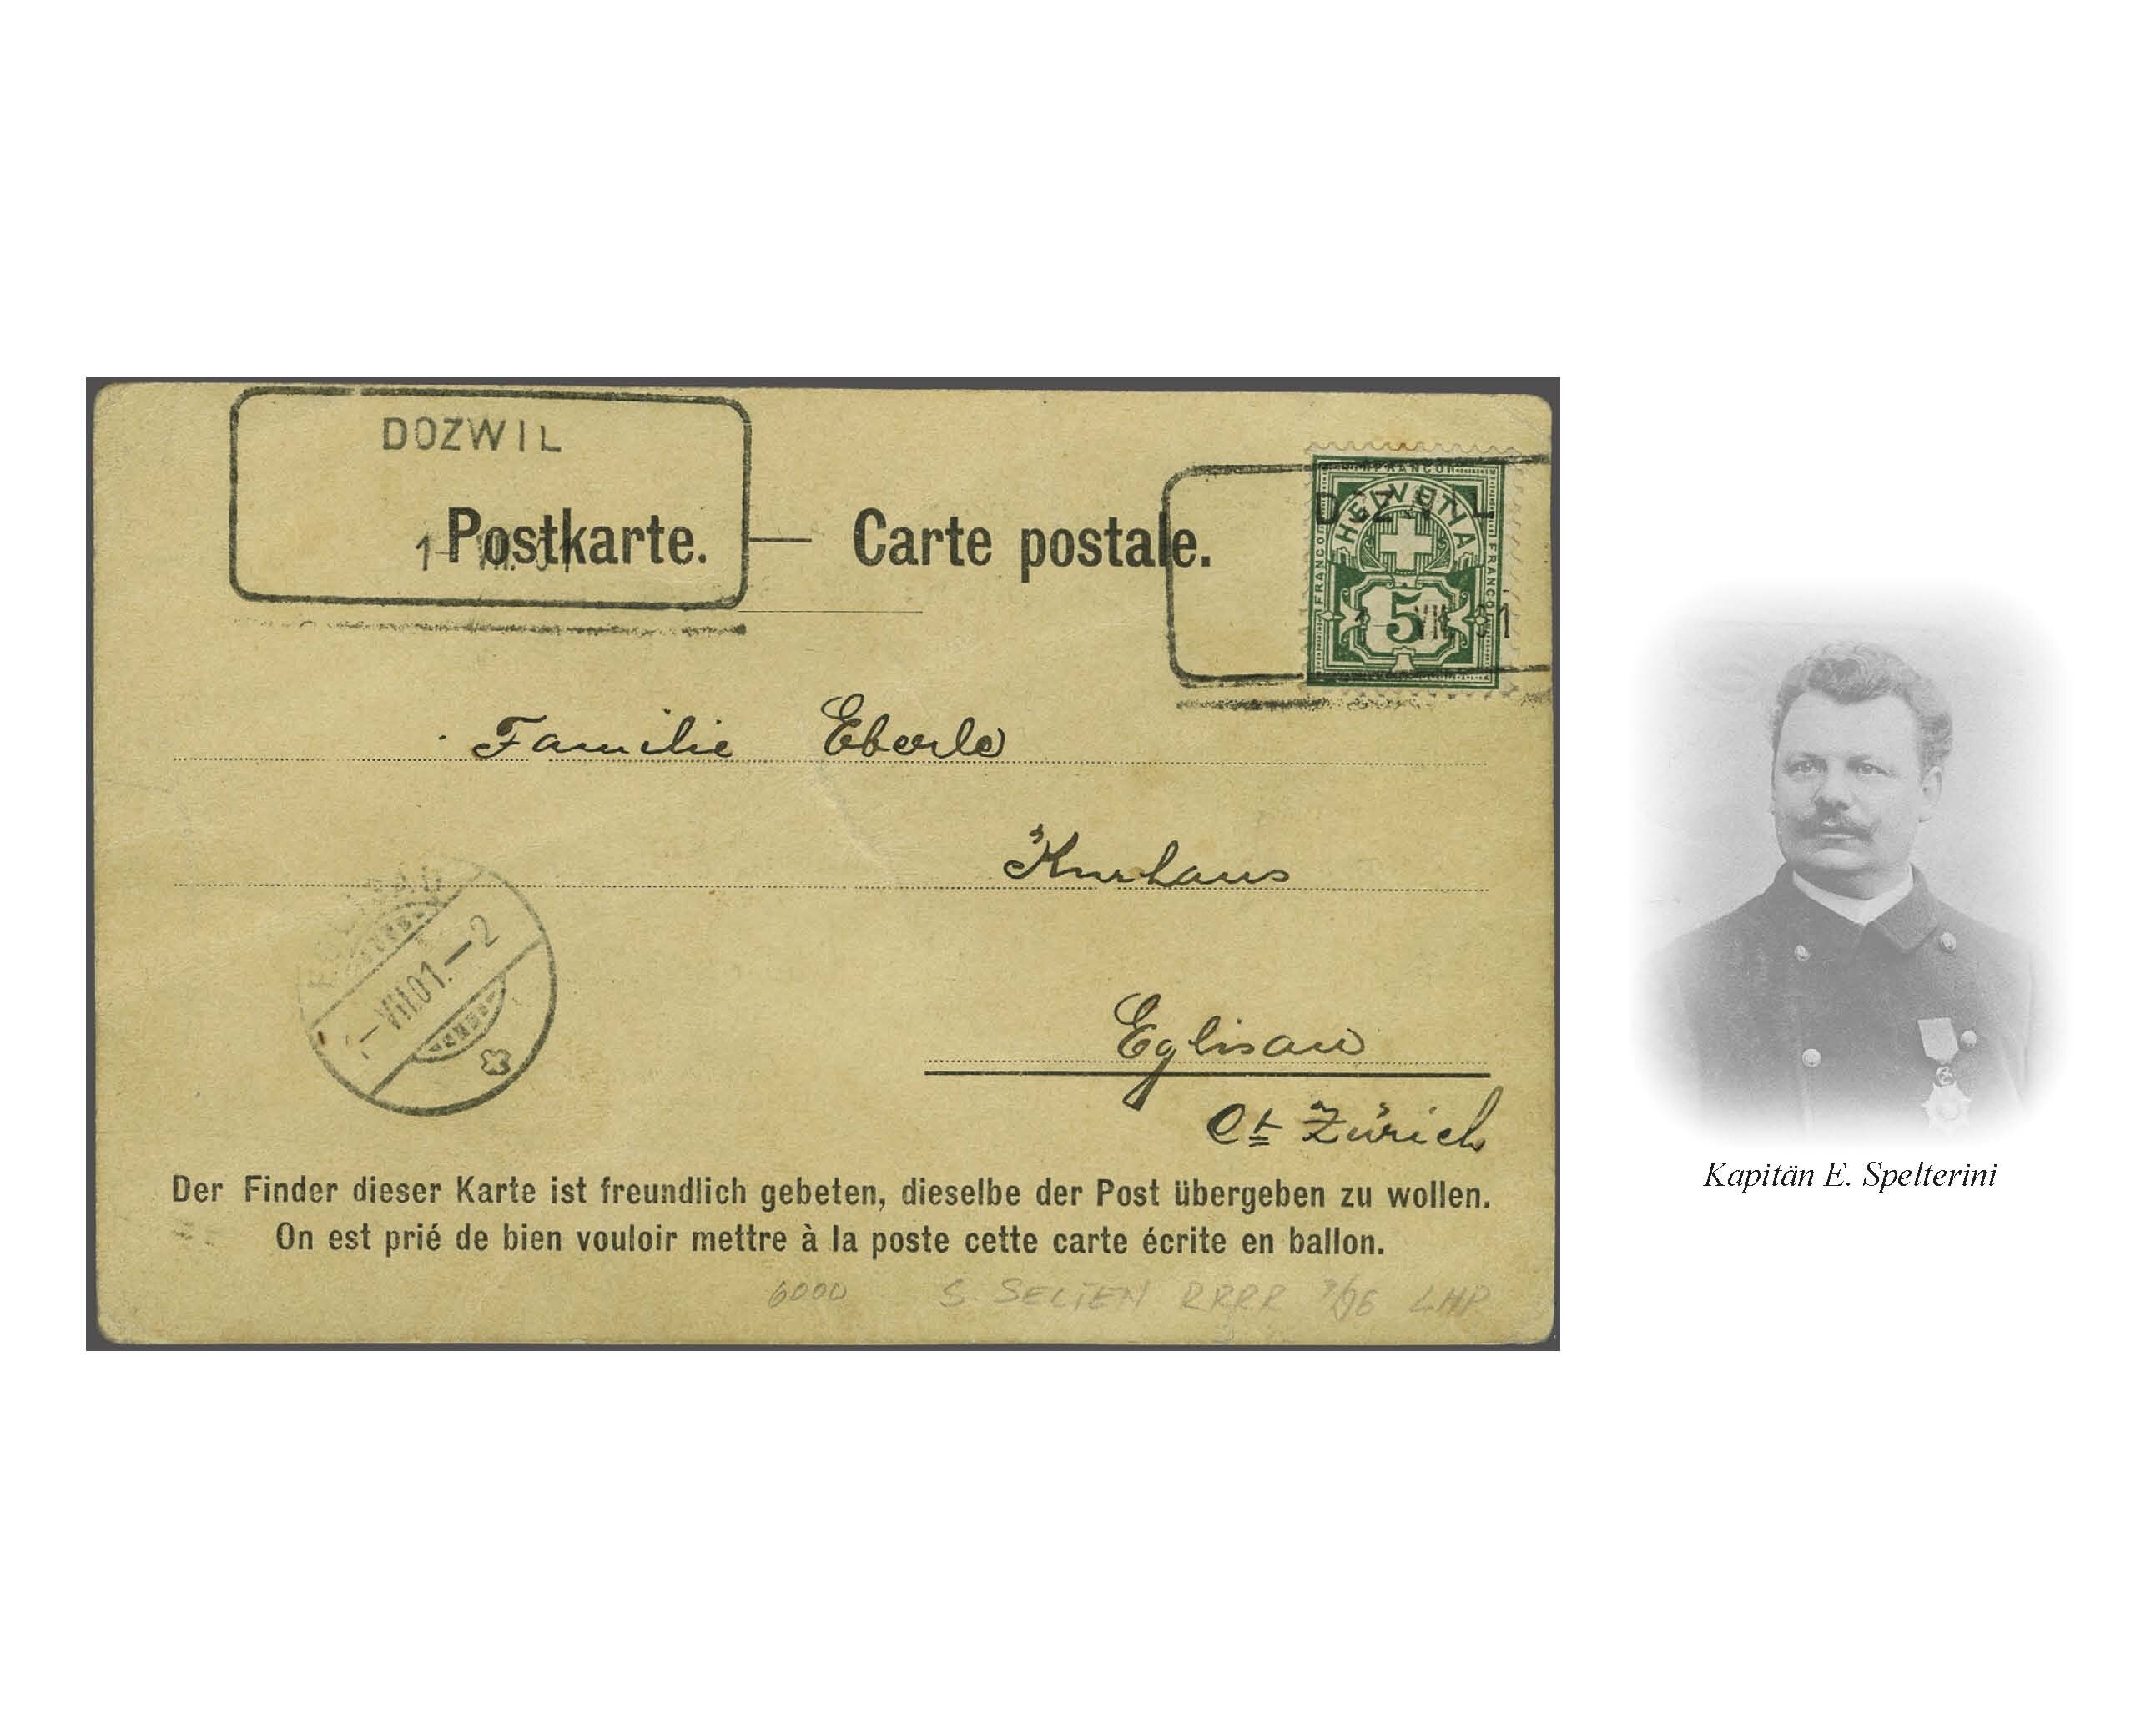 DOZWIL
Postkarte. — Carte postale.
1 VII. 01
FRANCO
HELVETIA
FRANCO
FRANCO
5
VII 01
Familie Eberle
Kurhaus
EGLISAU
1-VII.01.-2
Eglisau
Ct Zürich
Der Finder dieser Karte ist freundlich gebeten, dieselbe der Post übergeben zu wollen.
On est prié de bien vouloir mettre à la poste cette carte écrite en ballon.
6000 S. SELTEN RRRR LHP
Kapitän E. Spelterini